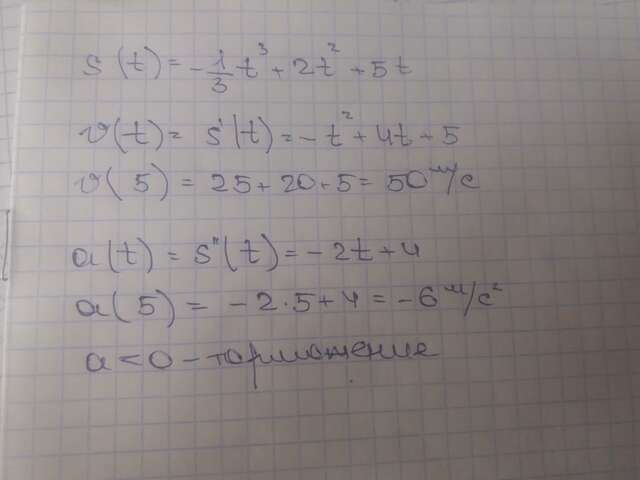 s(t) = -1/3 t³ + 2t² + 5t
v(t) = s'(t) = -t² + 4t + 5
v(5) = 25 + 20 + 5 = 50 м/с
a(t) = s"(t) = -2t + 4
a(5) = -2·5+4 = -6 м/с²
a < 0 - торможение